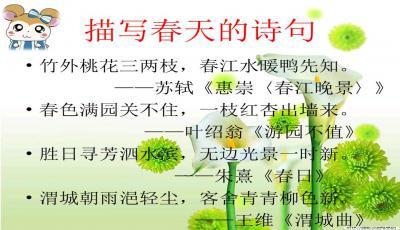 描写春天的诗句
• 竹外桃花三两枝，春江水暖鸭先知。
——苏轼《惠崇〈春江晚景〉》
• 春色满园关不住，一枝红杏出墙来。
——叶绍翁《游园不值》
• 胜日寻芳泗水滨，无边光景一时新。
——朱熹《春日》
• 渭城朝雨浥轻尘，客舍青青柳色新。
——王维《渭城曲》